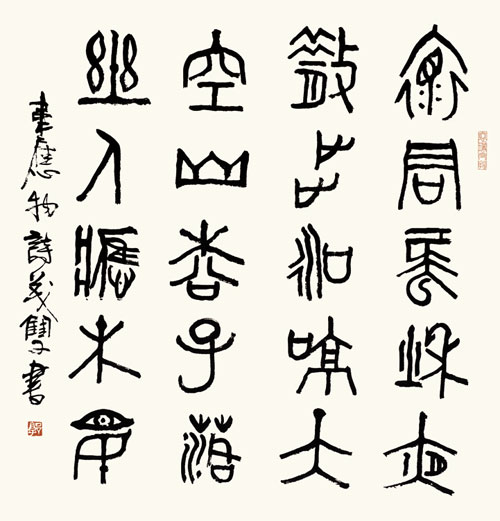 懷君屬秋夜
散步詠涼天
空山松子落
幽人應未眠
韋應物詩書